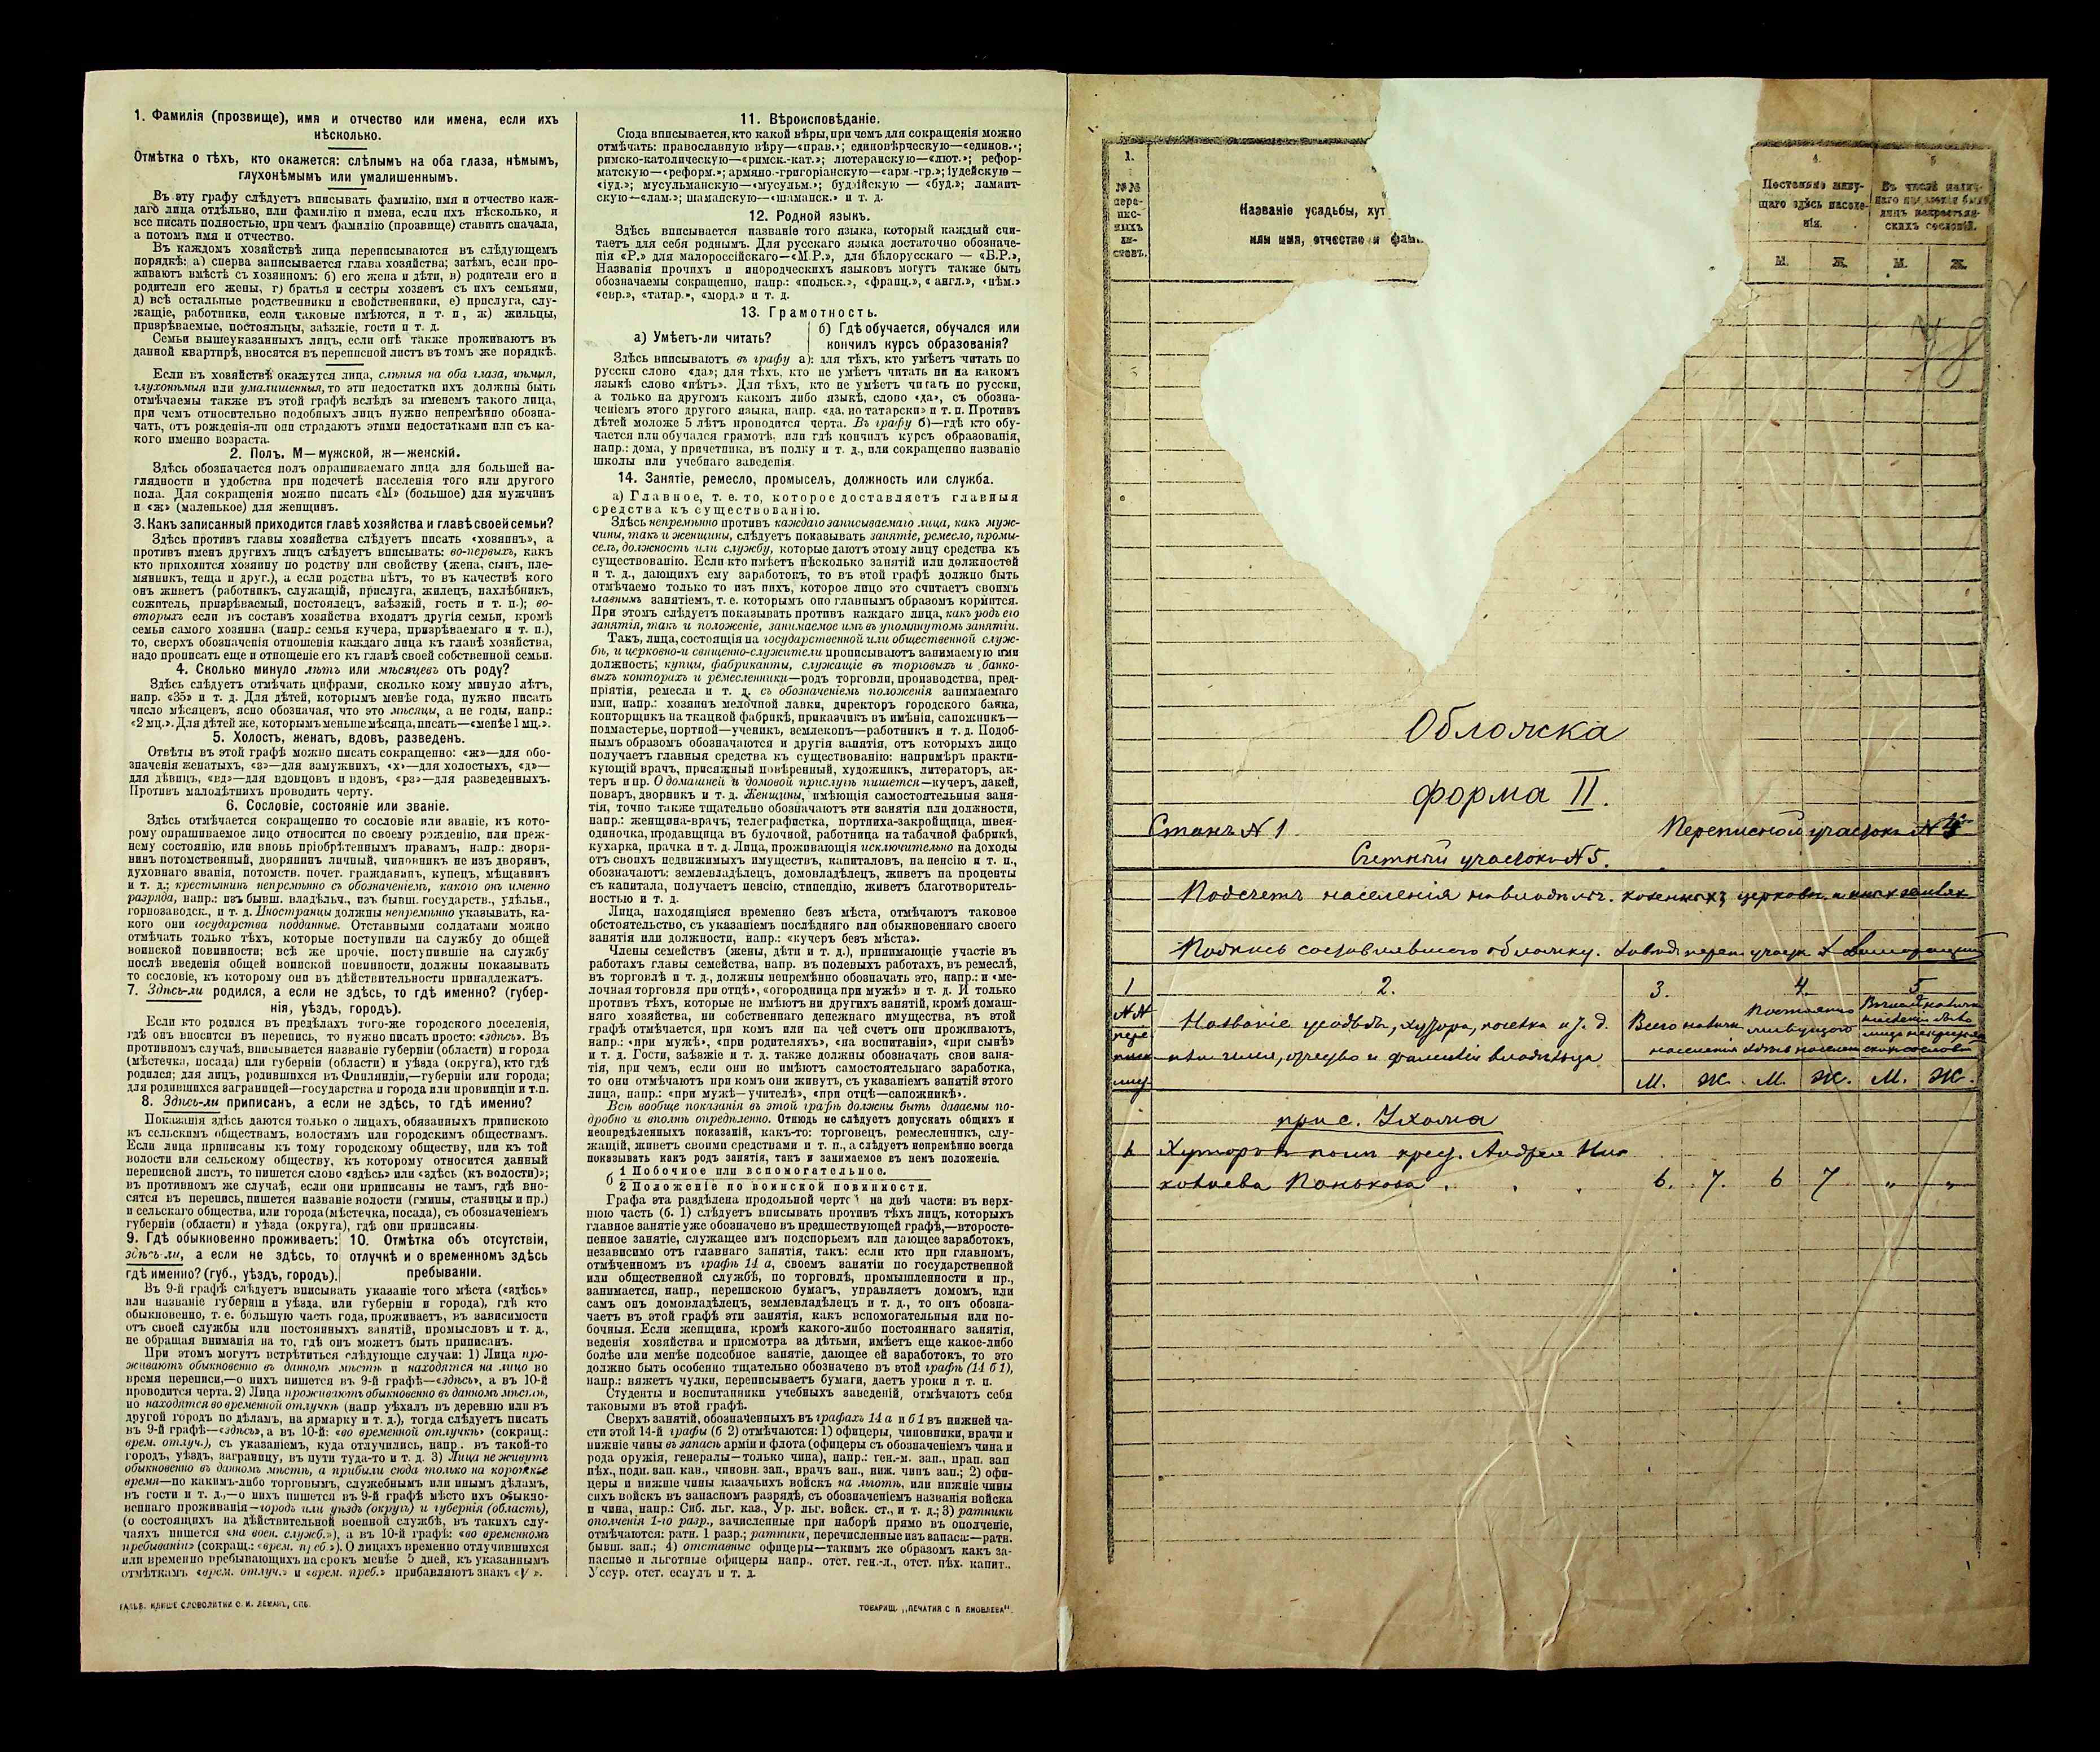 1. Фамилія (прозвище), имя и отчество или имена, если ихъ
нѣсколько.
Отмѣтка о тѣхъ, кто окажется: слѣпымъ на оба глаза, нѣмымъ,
глухонѣмымъ или умалишеннымъ.
Въ эту графу слѣдуетъ вписывать фамилію, имя и отчество каж-
даго лица отдѣльно, или фамилію и имена, если ихъ нѣсколько, и
все писать полностью, при чемъ фамилію (прозвище) ставить сначала,
а потомъ имя и отчество.
Въ каждомъ хозяйствѣ лица переписываются въ слѣдующемъ
порядкѣ: а) сперва записывается глава хозяйства; затѣмъ, если про-
живаютъ вмѣстѣ съ хозяиномъ: б) его жена и дѣти, в) родители его и
родители его жены, г) братья и сестры хозяевъ съ ихъ семьями,
д) всѣ остальные родственники и свойственники, е) прислуга, слу-
жащіе, работники, если таковые имѣются, и т. п, ж) жильцы,
призрѣваемые, постояльцы, заѣзжіе, гости и т. д.
Семьи вышеуказанныхъ лицъ, если онѣ также проживаютъ въ
данной квартирѣ, вносятся въ переписной листъ въ томъ же порядкѣ.
Если въ хозяйствѣ окажутся лица, слѣпыя на оба глаза, нѣмыя,
глухонѣмыя или умалишенныя, то эти недостатки ихъ должны быть
отмѣчаемы также въ этой графѣ вслѣдъ за именемъ такого лица,
при чемъ относительно подобныхъ лицъ нужно непремѣнно обозна-
чать, отъ рожденія-ли они страдаютъ этими недостатками или съ ка-
кого именно возраста.
2. Полъ. М—мужской, ж—женскій.
Здѣсь обозначается полъ опрашиваемаго лица для большей на-
глядности и удобства при подсчетѣ населенія того или другого
пола. Для сокращенія можно писать «М» (большое) для мужчинъ
и «ж» (маленькое) для женщинъ.
3. Какъ записанный приходится главѣ хозяйства и главѣ своей семьи?
Здѣсь противъ главы хозяйства слѣдуетъ писать «хозяинъ», а
противъ именъ другихъ лицъ слѣдуетъ вписывать: во-первыхъ, какъ
кто приходится хозяину по родству или свойству (жена, сынъ, пле-
мянникъ, теща и друг.), а если родства нѣтъ, то въ качествѣ кого
онъ живетъ (работникъ, служащій, прислуга, жилецъ, нахлѣбникъ,
сожитель, призрѣваемый, постоялецъ, заѣзжій, гость и т. п.); во-
вторыхъ если въ составъ хозяйства входятъ другія семьи, кромѣ
семьи самого хозяина (напр.: семья кучера, призрѣваемаго и т. п.),
то, сверхъ обозначенія отношенія каждаго лица къ главѣ хозяйства,
надо прописать еще и отношеніе его къ главѣ своей собственной семьи.
4. Сколько минуло лѣтъ или мѣсяцевъ отъ роду?
Здѣсь слѣдуетъ отмѣчать цифрами, сколько кому минуло лѣтъ,
напр. «35» и т. д. Для дѣтей, которымъ менѣе года, нужно писать
число мѣсяцевъ, ясно обозначая, что это мѣсяцы, а не годы, напр.:
«2 мц.». Для дѣтей же, которымъ меньше мѣсяца, писать—«менѣе 1 мц.».
5. Холостъ, женатъ, вдовъ, разведенъ.
Отвѣты въ этой графѣ можно писать сокращенно: «ж»—для обо-
значенія женатыхъ, «з»—для замужнихъ, «х»—для холостыхъ, «д»—
для дѣвицъ, «вд»—для вдовцовъ и вдовъ, «рз»—для разведенныхъ.
Противъ малолѣтнихъ проводить черту.
6. Сословіе, состояніе или званіе.
Здѣсь отмѣчается сокращенно то сословіе или званіе, къ кото-
рому опрашиваемое лицо относится по своему рожденію, или преж-
нему состоянію, или вновь пріобрѣтеннымъ правамъ, напр.: дворя-
нинъ потомственный, дворянинъ личный, чиновникъ не изъ дворянъ,
духовнаго званія, потомств. почет. гражданинъ, купецъ, мѣщанинъ
и т. д.; крестьянинъ непремѣнно съ обозначеніемъ, какого онъ именно
разряда, напр.: изъ бывш. владѣльч., изъ бывш. государств., удѣльн.,
горнозаводск., и т. д. Иностранцы должны непремѣнно указывать, ка-
кого они государства подданные. Отставными солдатами можно
отмѣчать только тѣхъ, которые поступили на службу до общей
воинской повинности; всѣ же прочіе, поступившіе на службу
послѣ введенія общей воинской повинности, должны показывать
то сословіе, къ которому они въ дѣйствительности принадлежатъ.
7. Здѣсь-ли родился, а если не здѣсь, то гдѣ именно? (губер-
нія, уѣздъ, городъ).
Если кто родился въ предѣлахъ того-же городского поселенія,
гдѣ онъ вносится въ перепись, то нужно писать просто: «здѣсь». Въ
противномъ случаѣ, вписывается названіе губерніи (области) и города
(мѣстечка, посада) или губерніи (области) и уѣзда (округа), кто гдѣ
родился; для лицъ, родившихся въ Финляндіи,—губерніи или города;
для родившихся заграницей—государства и города или провинціи и т.п.
8. Здѣсь-ли приписанъ, а если не здѣсь, то гдѣ именно?
Показанія здѣсь даются только о лицахъ, обязанныхъ припискою
къ сельскимъ обществамъ, волостямъ или городскимъ обществамъ.
Если лица приписаны къ тому городскому обществу, или къ той
волости или сельскому обществу, къ которому относится данный
переписной листъ, то пишется слово «здѣсь» или «здѣсь (къ волости)»;
въ противномъ же случаѣ, если они приписаны не тамъ, гдѣ вно-
сятся въ перепись, пишется названіе волости (гмины, станицы и пр.)
и сельскаго общества, или города (мѣстечка, посада), съ обозначеніемъ
губерніи (области) и уѣзда (округа), гдѣ они приписаны.
9. Гдѣ обыкновенно проживаетъ:
здѣсь-ли, а если не здѣсь, то
гдѣ именно? (губ., уѣздъ, городъ).
10. Отмѣтка объ отсутствіи,
отлучкѣ и о временномъ здѣсь
пребываніи.
Въ 9-й графѣ слѣдуетъ вписывать указаніе того мѣста («здѣсь»
или названіе губерніи и уѣзда, или губерніи и города), гдѣ кто
обыкновенно, т. е. бóльшую часть года, проживаетъ, въ зависимости
отъ своей службы или постоянныхъ занятій, промысловъ и т. д.,
не обращая вниманія на то, гдѣ онъ можетъ быть приписанъ.
При этомъ могутъ встрѣтиться слѣдующіе случаи: 1) Лица про-
живаютъ обыкновенно въ данномъ мѣстѣ и находятся на лицо во
время переписи,—о нихъ пишется въ 9-й графѣ—«здѣсь», а въ 10-й
проводится черта. 2) Лица проживаютъ обыкновенно въ данномъ мѣстѣ,
но находятся во временной отлучкѣ (напр. уѣхалъ въ деревню или въ
другой городъ по дѣламъ, на ярмарку и т. д.), тогда слѣдуетъ писать
въ 9-й графѣ—«здѣсь», а въ 10-й: «во временной отлучкѣ» (сокращ.:
врем. отлуч.), съ указаніемъ, куда отлучились, напр. въ такой-то
городъ, уѣздъ, заграницу, въ пути туда-то и т. д. 3) Лица не живутъ
обыкновенно въ данномъ мѣстѣ, а прибыли сюда только на короткое
время—по какимъ-либо торговымъ, служебнымъ или инымъ дѣламъ,
въ гости и т. д.,—о нихъ пишется въ 9-й графѣ мѣсто ихъ обыкно-
веннаго проживанія—городъ или уѣздъ (округъ) и губернія (область),
(о состоящихъ на дѣйствительной военной службѣ, въ такихъ слу-
чаяхъ пишется «на воен. служб.»), а въ 10-й графѣ: «во временномъ
пребываніи» (сокращ.: «врем. преб.»). О лицахъ временно отлучившихся
или временно пребывающихъ на срокъ менѣе 5 дней, къ указаннымъ
отмѣткамъ «врем. отлуч.» и «врем. преб.» прибавляютъ знакъ «V».
ГАЛЬВ. КЛИШЕ СЛОВОЛИТНИ О. И. ЛЕМАНЪ, СПБ.
11. Вѣроисповѣданіе.
Сюда вписывается, кто какой вѣры, при чемъ для сокращенія можно
отмѣчать: православную вѣру—«прав.»; единовѣрческую—«единов.»;
римско-католическую—«римск.-кат.»; лютеранскую—«лют.»; рефор-
матскую—«реформ.»; армяно.-григоріанскую—«арм.-гр.»; іудейскую—
«іуд.»; мусульманскую—«мусульм.»; буддійскую — «буд.»; ламаит-
скую—«лам.»; шаманскую—«шаманск.» и т. д.
12. Родной языкъ.
Здѣсь вписывается названіе того языка, который каждый счи-
таетъ для себя роднымъ. Для русскаго языка достаточно обозначе-
нія «Р.» для малороссійскаго—«М.Р.», для бѣлорусскаго — «Б.Р.»,
Названія прочихъ и инородческихъ языковъ могутъ также быть
обозначаемы сокращенно, напр.: «польск.», «франц.», «англ.», «нѣм.»
«евр.», «татар.», «морд.» и т. д.
13. Грамотность.
а) Умѣетъ-ли читать?
б) Гдѣ обучается, обучался или
кончилъ курсъ образованія?
Здѣсь вписываютъ въ графу а): для тѣхъ, кто умѣетъ читать по
русски слово «да»; для тѣхъ, кто не умѣетъ читать ни на какомъ
языкѣ слово «нѣтъ». Для тѣхъ, кто не умѣетъ читать по русски,
а только на другомъ какомъ либо языкѣ, слово «да», съ обозна-
ченіемъ этого другого языка, напр. «да, по татарски» и т. п. Противъ
дѣтей моложе 5 лѣтъ проводится черта. Въ графу б)—гдѣ кто обу-
чается или обучался грамотѣ, или гдѣ кончилъ курсъ образованія,
напр.: дома, у причетника, въ полку и т. д., или сокращенно названіе
школы или учебнаго заведенія.
14. Занятіе, ремесло, промыселъ, должность или служба.
а) Главное, т. е. то, которое доставляетъ главныя
средства къ существованію.
Здѣсь непремѣнно противъ каждаго записываемаго лица, какъ муж-
чины, такъ и женщины, слѣдуетъ показывать занятіе, ремесло, промы-
селъ, должность или службу, которые даютъ этому лицу средства къ
существованію. Если кто имѣетъ нѣсколько занятій или должностей
и т. д., дающихъ ему заработокъ, то въ этой графѣ должно быть
отмѣчаемо только то изъ нихъ, которое лицо это считаетъ своимъ
главнымъ занятіемъ, т. е. которымъ оно главнымъ образомъ кормится.
При этомъ слѣдуетъ показывать противъ каждаго лица, какъ родъ его
занятія, такъ и положеніе, занимаемое имъ въ упомянутомъ занятіи.
Такъ, лица, состоящія на государственной или общественной служ-
бѣ, и церковно-и священно-служители прописываютъ занимаемую ими
должность; купцы, фабриканты, служащіе въ торговыхъ и банко-
выхъ конторахъ и ремесленники—родъ торговли, производства, пред-
пріятія, ремесла и т. д. съ обозначеніемъ положенія занимаемаго
ими, напр.: хозяинъ мелочной лавки, директоръ городского банка,
конторщикъ на ткацкой фабрикѣ, приказчикъ въ имѣніи, сапожникъ—
подмастерье, портной—ученикъ, землекопъ—работникъ и т. д. Подоб-
нымъ образомъ обозначаются и другія занятія, отъ которыхъ лицо
получаетъ главныя средства къ существованію: напримѣръ практи-
кующій врачъ, присяжный повѣренный, художникъ, литераторъ, ак-
теръ и пр. О домашней и домовой прислугѣ пишется—кучеръ, лакей,
поваръ, дворникъ и т. д. Женщины, имѣющія самостоятельныя заня-
тія, точно также тщательно обозначаютъ эти занятія или должности,
напр.: женщина-врачъ, телеграфистка, портниха-закройщица, швея-
одиночка, продавщица въ булочной, работница на табачной фабрикѣ,
кухарка, прачка и т. д. Лица, проживающія исключительно на доходы
отъ своихъ недвижимыхъ имуществъ, капиталовъ, на пенсію и т. п.,
обозначаютъ: землевладѣлецъ, домовладѣлецъ, живетъ на проценты
съ капитала, получаетъ пенсію, стипендію, живетъ благотворитель-
ностью и т. д.
Лица, находящіяся временно безъ мѣста, отмѣчаютъ таковое
обстоятельство, съ указаніемъ послѣдняго или обыкновеннаго своего
занятія или должности, напр.: «кучеръ безъ мѣста».
Члены семействъ (жены, дѣти и т. д.), принимающіе участіе въ
работахъ главы семейства, напр. въ полевыхъ работахъ, въ ремеслѣ,
въ торговлѣ и т. д., должны непремѣнно обозначать это, напр.: и «ме-
лочная торговля при отцѣ», «огородница при мужѣ» и т. д. И только
противъ тѣхъ, которые не имѣютъ ни другихъ занятій, кромѣ домаш-
няго хозяйства, ни собственнаго денежнаго имущества, въ этой
графѣ отмѣчается, при комъ или на чей счетъ они проживаютъ,
напр.: «при мужѣ», «при родителяхъ», «на воспитаніи», «при сынѣ»
и т. д. Гости, заѣзжіе и т. д. также должны обозначать свои заня-
тія, при чемъ, если они не имѣютъ самостоятельнаго заработка,
то они отмѣчаютъ при комъ они живутъ, съ указаніемъ занятій этого
лица, напр.: «при мужѣ—учителѣ», «при отцѣ—сапожникѣ».
Всѣ вообще показанія въ этой графѣ должны быть даваемы по-
дробно и вполнѣ опредѣленно. Отнюдь не слѣдуетъ допускать общихъ и
неопредѣленныхъ показаній, какъ-то: торговецъ, ремесленникъ, слу-
жащій, живетъ своими средствами и т. п., а слѣдуетъ непремѣнно всегда
показывать какъ родъ занятія, такъ и занимаемое въ немъ положеніе.
б 1 Побочное или вспомогательное.
2 Положеніе по воинской повинности.
Графа эта раздѣлена продольной чертой на двѣ части: въ верх-
нюю часть (б. 1) слѣдуетъ вписывать противъ тѣхъ лицъ, которыхъ
главное занятіе уже обозначено въ предшествующей графѣ,—второсте-
пенное занятіе, служащее имъ подспорьемъ или дающее заработокъ,
независимо отъ главнаго занятія, такъ: если кто при главномъ,
отмѣченномъ въ графѣ 14 а, своемъ занятіи по государственной
или общественной службѣ, по торговлѣ, промышленности и пр.,
занимается, напр., перепискою бумагъ, управляетъ домомъ, или
самъ онъ домовладѣлецъ, землевладѣлецъ и т. д., то онъ обозна-
чаетъ въ этой графѣ эти занятія, какъ вспомогательныя или по-
бочныя. Если женщина, кромѣ какого-либо постояннаго занятія,
веденія хозяйства и присмотра за дѣтьми, имѣетъ еще какое-либо
болѣе или менѣе подсобное занятіе, дающее ей заработокъ, то это
должно быть особенно тщательно обозначено въ этой графѣ (14 б 1),
напр.: вяжетъ чулки, переписываетъ бумаги, даетъ уроки и т. п.
Студенты и воспитанники учебныхъ заведеній, отмѣчаютъ себя
таковыми въ этой графѣ.
Сверхъ занятій, обозначенныхъ въ графахъ 14 а и б 1 въ нижней ча-
сти этой 14-й графы (б 2) отмѣчаются: 1) офицеры, чиновники, врачи и
нижніе чины въ запасѣ арміи и флота (офицеры съ обозначеніемъ чина и
рода оружія, генералы—только чина), напр.: ген.-м. зап., прап. зап
пѣх., подп. зап. кав., чиновн. зап., врачъ зап., ниж. чинъ зап.; 2) офи-
церы и нижніе чины казачьихъ войскъ на льготѣ, или нижніе чины
сихъ войскъ въ запасномъ разрядѣ, съ обозначеніемъ названія войска
и чина, напр.: Сиб. льг. каз., Ур. льг. войск. ст., и т. д.; 3) ратники
ополченія 1-го разр., зачисленные при наборѣ прямо въ ополченіе,
отмѣчаются: ратн. 1 разр.; ратники, перечисленные изъ запаса:—ратн.
бывш. зап.; 4) отставные офицеры—такимъ же образомъ какъ за-
пасные и льготные офицеры напр., отст. ген.-л., отст. пѣх. капит..
Уссур. отст. есаулъ и т. д.
ТОВАРИЩ. „ПЕЧАТНЯ С. П. ЯКОВЛЕВА".
1.
№№
пере-
пис-
ныхъ
ли-
стовъ.
Названіе усадьбы, хут
или имя, отчество и фам
4.
Постоянно живу-
щаго здѣсь населе-
нія.
М. Ж.
5
Въ числѣ налич-
наго населенія было
лицъ некрестьян-
скихъ сословій.
М. Ж.
Обложка
форма II.
Станъ № 1 Переписной участокъ №
Счетный участокъ № 5.
Подсчетъ населенія на владѣльч. казенныхъ, церковн. и иныхъ земляхъ
Подпись составлявшаго обложку. Завѣд. переп. участк.
1 2. 3. 4. 5
№№ Названіе усадьбы, хутора, поселка и т. д. Всего наличн. Постоянно
или имя, отчество и фамилія владѣльца населенія
М. Ж. М. Ж. М. Ж.
при с. Ухома
1 Хуторъ крест. Андрея Ник
колаева Панькова . . . 6. 7. 6 7 „ „